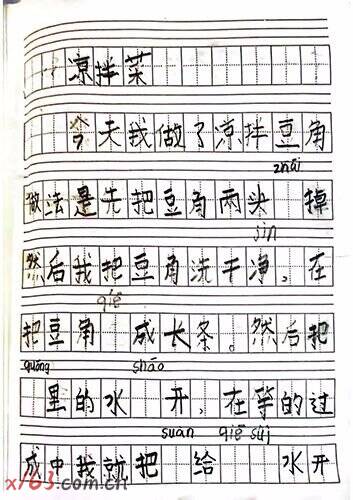 凉拌菜
今天我做了凉拌豆角
zhāi
做法是先把豆角两头 掉
jìn
然后我把豆角洗干净,在
qiē
把豆角 成长条。然后把
guōng shāo
里的水 开,在等的过
suàn qiē suì
成中我就把 给 水开